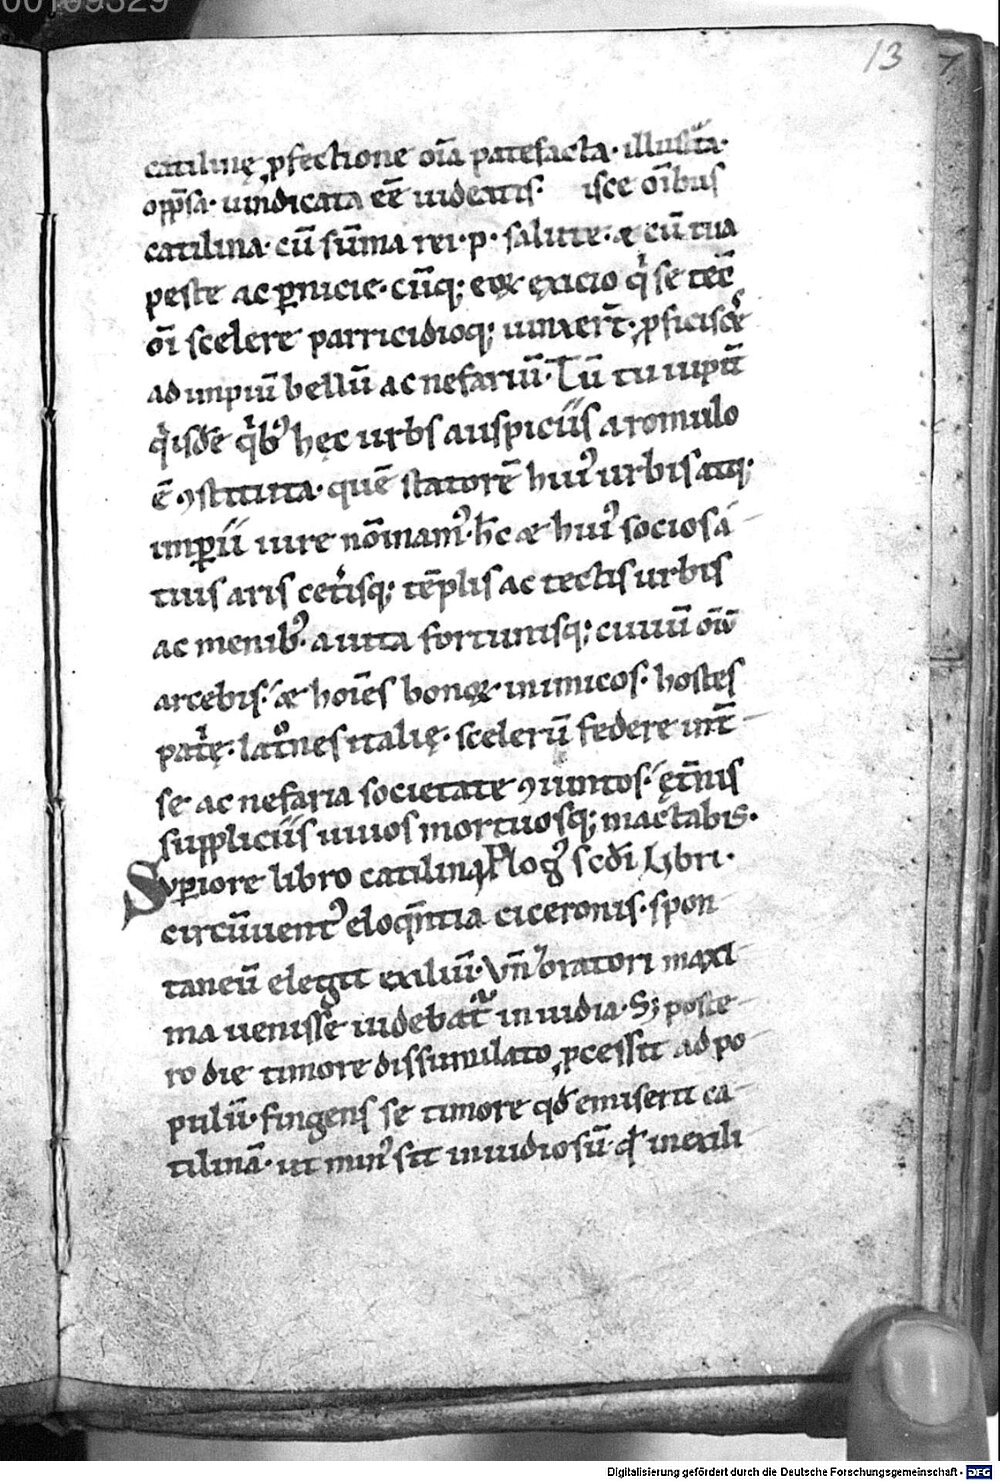 00109329
13
7
catilinę ꝓfectione oīa patefacta· illustᵃta·
opp̄ssa· uindicata eē uideatis· isce oīibus
catilina· cū sūma rei·p· salute· æ cū tua
peste ac ꝑnicie· cūq; eoꝝ exicio qⁱ se tec̄
oī scelere parricidioq; uinxer̄t· ꝓficiscẽ
ad impiū bellū ac nefariū· Tū tu iupit̄
qⁱ isdē qⁱb᷒ hęc urbs auspiciis a romulo
ē ꝯstituta· quē statorē hui᷒ urbis atq;
imꝑii iure nōinam᷒· h̄c æ hui᷒ socios á
tuis aris ceteⁱsq; tēplis ac tectis urbis
ac menib᷒· a uita fortunisq; ciuiū oīū
arcebis· æ hoīes bonoꝝ inimicos· hostes
patⁱę· latᵒnes italię· scelerū federe int̄
se ac nefaria societate ꝯiunctos· ęt̄nis
suppliciis uiuos mortuosq; mactabis·
Suꝑiore libro catilina Plog᷒ scd̄i Libri·
circūuent᷒ eloqn̄tia ciceronis· spon
taneū elegit exiliū· Vn̄ oratori maxi
ma uenisse uidebatᷣ inuidia· S; poste
ro die timore dissimulato ꝓcessit ad po
pulū· fingens se timore qd̄ emiserit ca
tilinā· ut min᷒ sit inuidiosū· qd̄ in exili
Digitalisierung gefördert durch die Deutsche Forschungsgemeinschaft - DFG